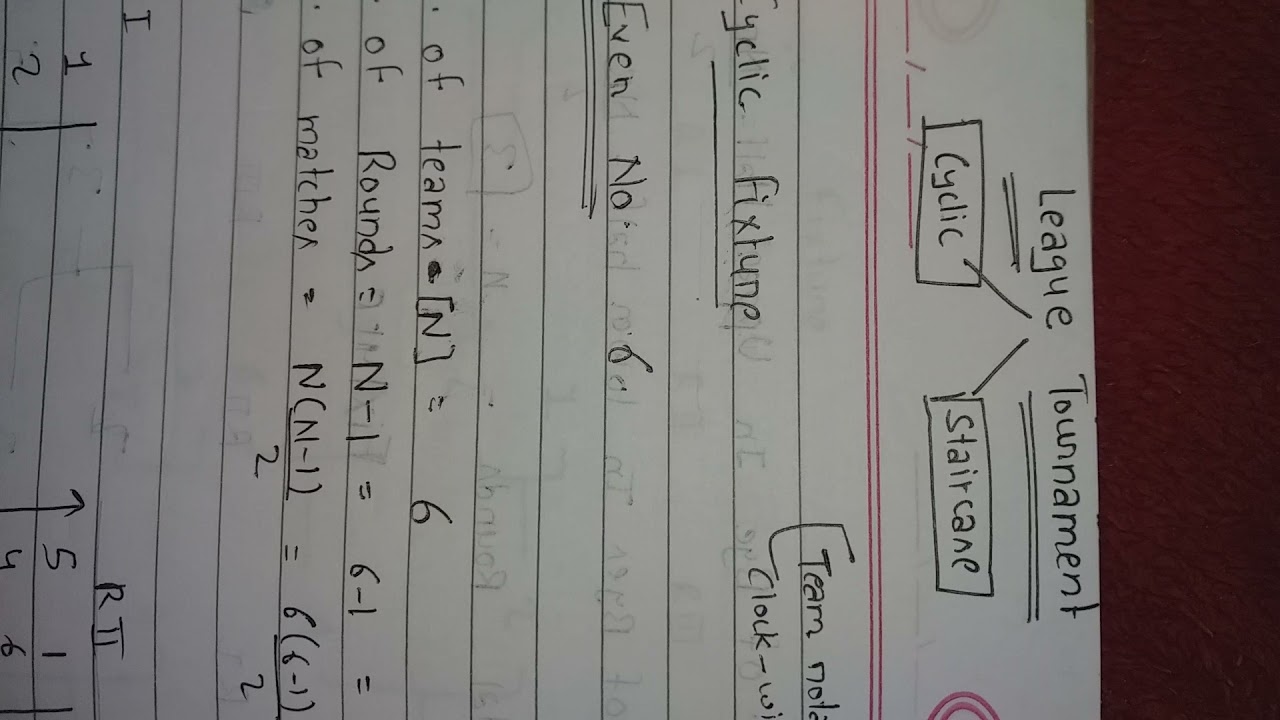 League Tournament
Cyclic Staircase
Team rota
Cyclic fixture Clock-wi
Even No. 6
. of teams [N] = 6
. of Rounds = N-1 = 6-1 =
. of matches = N(N-1)/2 = 6(6-1)/2
I R II
1 ↑ 5 1
2 4 6